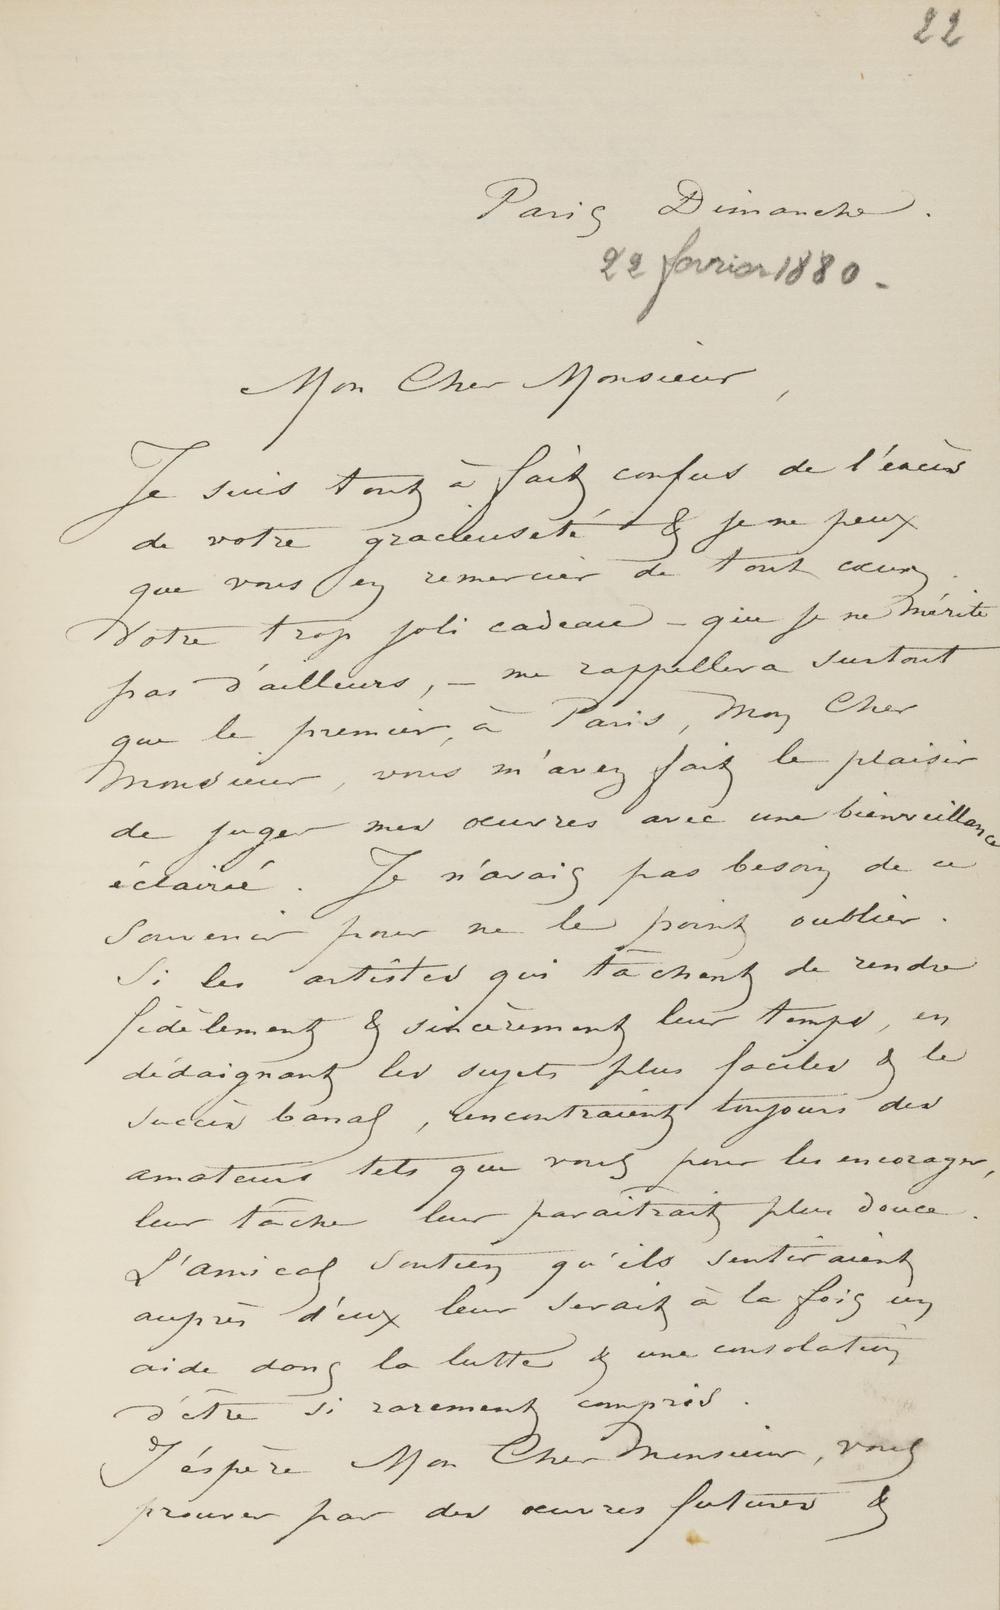 22
Paris Dimanche.
22 février 1880.
Mon Cher Monsieur,
Je suis tout à fait confus de l'excès
de votre gracieuseté & je ne peux
que vous en remercier de tout cœur.
Votre trop joli cadeau – que je ne mérite
pas d'ailleurs, – me rappellera surtout
que le premier, à Paris, Mon Cher
Monsieur, vous m'avez fait le plaisir
de juger mes œuvres avec une bienveillance
éclairée. Je n'avais pas besoin de ce
souvenir pour ne le point oublier.
Si les artistes qui tâchent de rendre
fidèlement & sincèrement leur temps, en
dédaignant les sujets plus faciles & le
succès banal, rencontraient toujours des
amateurs tels que vous pour les encorager,
leur tâche leur paraîtrait plus douce.
L'amical soutien qu'ils sentiraient
auprès d'eux leur serait à la fois un
aide dans la lutte & une consolation
d'être si rarement compris.
J'éspère Mon Cher Monsieur, vous
prouver par des œuvres futures &